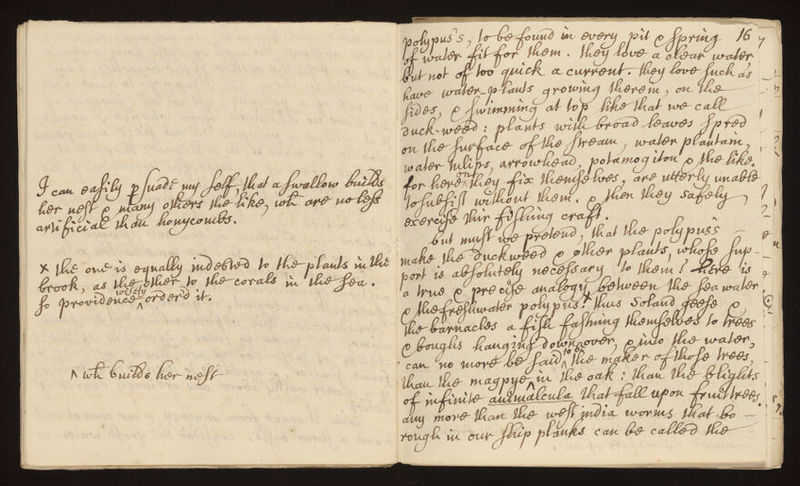 I can easily pſuade my ſelf, that a ſwallow builds
her neſt & many others the like, wh are no leſs
artificial than honycombs.
x the one is equally indebted to the plants in the
brook, as the other to the corals in the ſea.
ſo providence wiſely orderd it.
^ wh builds her neſt
polypus's, to be found in every pit & ſpring 16
of water fit for them. they love a clear water
but not of too quick a current. they love ſuch as
have water-plants growing therein, on the
ſides, & ſwimming at top like that we call
duck-weed: plants with broad leaves ſpred
on the ſurface of the ſtream, water plantain,
water tulips, arrowhead, potamogiton & the like.
for hereon they fix themſelves, are utterly unable
to ſubſiſt without them. & then they safely
exerciſe thir fiſhing craft.
but muſt we pretend, that the polypus's
make the duckweed & other plants, whoſe ſup-
port is abſolutely neceſſary to them? Here is
a true & preciſe analogy between the ſea water
& the freſhwater polypus! x thus Soland geeſe &
the barnacles a fiſh faſtning themſelves to trees
& boughs hanging down over, & into the water,
can no more be ſaid to be the maker of thoſe trees,
than the magpye ^ in the oak: than the blights
of infinite animalcula that fall upon fruit trees,
any more than the weſt india worms that bo-
rough in our ſhip planks can be called the